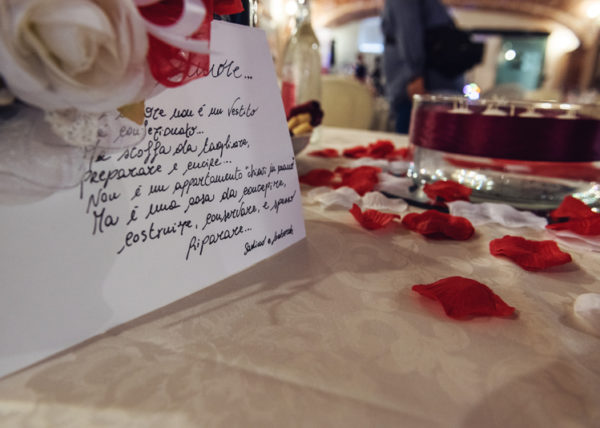 Amore...
L'amore non è un vestito
confezionato...
Ma stoffa da tagliare,
preparare e cucire...
Non è un appartamento "chiavi in mano"
Ma è una casa da concepire,
costruire, conservare, e spesso
Riparare...